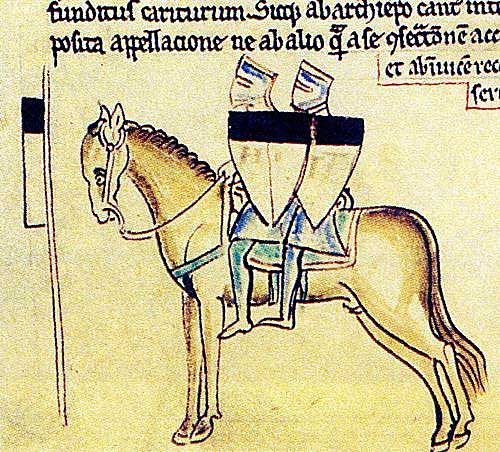 funditus cariturum. Sicq; ab archiepo cant int
posita appellacione ne ab alio q̄ a se ꝯsecͣtōnē acc
et ab inuicē rec
ser